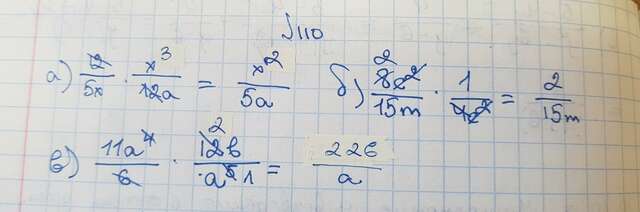 №110
а) 2/5x · x³/12a = x²/5a б) 2 8c²/15m · 1/4c² = 2/15m
в) 11a⁴/6 · 2 12b/a⁵ 1 = 22b/a